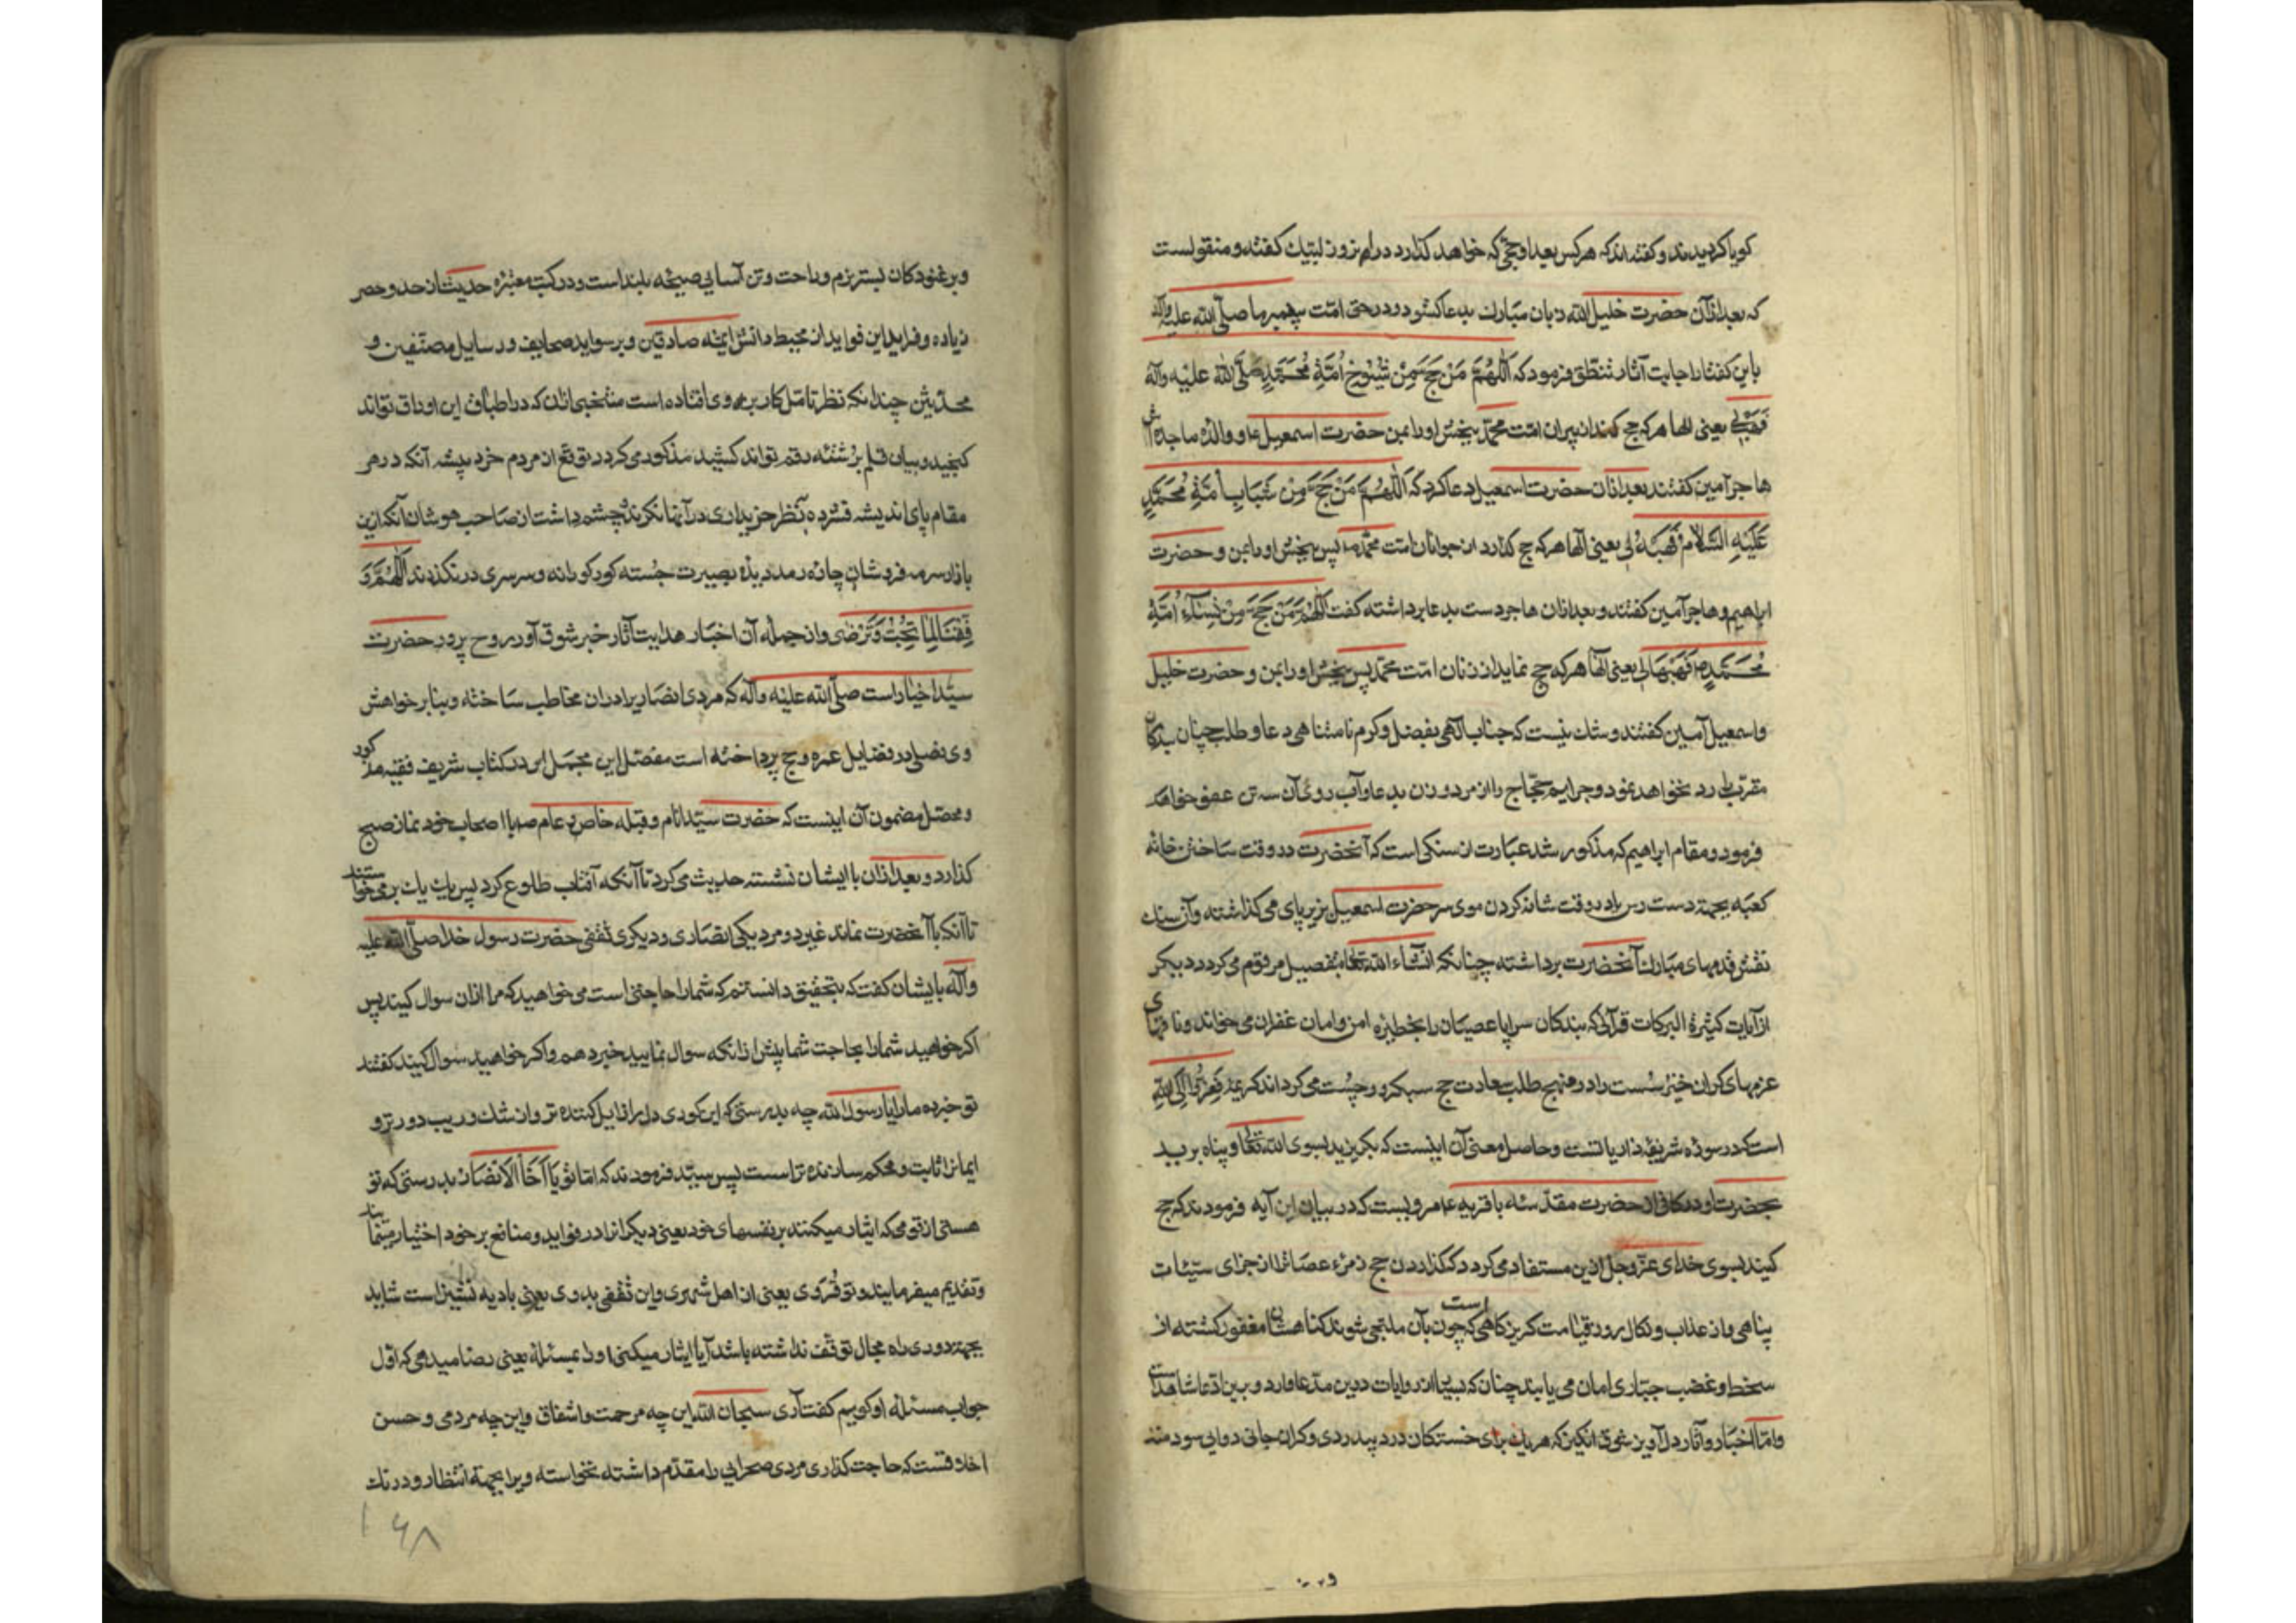 کویا کردیدند و کفته‌اند که هر کس بعد او حجی که خواهد کذارد در ام روز لبیک کفته و منقولست
که بعد از آن حضرت خلیل الله زبان مبارک بدعا کشود و در حق امت پیغمبر ما صلی الله علیه وآله
باین کفتار اجابت آثار تنطق فرمود که اَللّهُمَّ مَنْ حَجَّ مِنْ شُیُوخِ اُمَّةِ مُحَمَّدٍ صَلَّی اللهُ علیه وآله
فَهَبْهُ لی یعنی الها هر که حج کند از پیران امت محمد ببخش او را بمن حضرت اسمعیل ع و والده ماجده‌اش
هاجر آمین کفتند بعد از آن حضرت اسمعیل دعا کرد که اَللّهُمَّ مَنْ حَجَّ مِن شَبَابِ اُمَّةِ مُحَمَّدٍ
عَلَیهِ السَّلام فَهَبْهُ لی یعنی الها هر که حج کذارد از جوانان امت محمد ص پس ببخش او را بمن و حضرت
ابراهیم و هاجر آمین کفتند و بعد از آن هاجر دست بدعا برداشته کفت اَللّهُمَّ مَنْ حَجَّ مِنْ نِسَآءِ اُمَّةِ
مُحَمَّدٍ ص فَهَبْهَا لی یعنی الها هر که حج نماید از زنان امت محمد پس ببخش او را بمن و حضرت خلیل
و اسمعیل آمین کفتند و شک نیست که جناب الهی بفضل و کرم نامتناهی دعا و طلب چنان بندکان
مقرب را رد نخواهد نمود و جرایم حجاج را از مرد و زن بدعا و آب روی آن سه تن عفو خواهد
فرمود و مقام ابراهیم که مذکور شد عبارت از سنکی است که آنحضرت در وقت ساختن خانه
کعبه بجهة دست رس یا در وقت شانه کردن موی سر حضرت اسمعیل بزیر پای می کذاشته و آن سنک
نقش قدمهای مبارک آنحضرت برداشته چنانکه انشاء الله تعالی بتفصیل مرقوم می کردد دیکر
از آیات کثیرة البرکات قرآنی که بندکان سراپا عصیان را بخطیره امن و امان غفران می خواند و ناقهای
عزمهای کران خیز سست را در منهج طلب سعادت حج سبکرو و چست می کرداند کریمه فَفِرُّوا اِلَی اللهِ
است که در سوره شریفه ذاریاتست و حاصل معنی آن اینست که بکریزید بسوی الله تعالی و پناه برید
بحضرت او در کافی از حضرت مقدسه باقریه ع مرویست که در بیان این آیه فرمودند که حج
کنید بسوی خدای عز و جل ازین مستفاد می کردد که کذاردن حج زمره عصاة را از جزای سیئات
پناهی و از عذاب و نکال روز قیامت کریزکاهی است که چون بآن ملتجی شوند کناهشان مغفور کشته از
سخط و غضب جباری امان می یابند چنان که بسیاری از روایات درین مدعا وارد و برین ادعا شاهد است
و اما اخبار و آثار دل آویز شوق انکیز که هر یک برای خستکان درد بیدردی و کران جانی دوایی سودمند
و بر غنودکان بستر بزم و راحت و تن آسایی صیحه بلند است و در کتب معتبره حدیث از حد و حصر
زیاده و فراید این فواید از محیط دانش ائمه صادقین و بر سواحد صحایف و رسایل مصنفین و
محدثین چندانکه نظر تامل کار بر وی افتاده است منتخبی از آن که در اطباق این اوراق تواند
کنجید و بیان قلم بر شته رقم تواند کشید مذکور می کردد توقع از مردم خرد پیشه آنکه در هر
مقام پای اندیشه فشرده بنظر خریداری در آنها نکرند و چشم داشت از صاحب هوشان آنکه ازین
بازار سرمه فروشان چاره رمد دیده بصیرت جسته کور کورانه و سرسری در نکذرند اَللّهُمَّ وَ
فِّقْنَا لِمَا تُحِبُّ وَ تَرْضی و از جمله آن اخبار هدایت آثار خبر شوق آور روح پرور حضرت
سید اخیار است صلی الله علیه وآله که مردی انصاری را در آن مخاطب ساخته و بنا بر خواهش
وی فصلی در فضایل عمره و حج پرداخته است مفصل این مجمل این در کتاب شریف فقیه مذکور
و محصل مضمون آن اینست که حضرت سید انام و قبله خاص و عام ص با اصحاب خود نماز صبح
کذارد و بعد از آن با ایشان نشسته حدیث می کرد تا آنکه آفتاب طلوع کرد پس یک یک بر می خواستند
تا آنکه با آنحضرت نماند غیر دو مرد یکی انصاری و دیکری ثقفی حضرت رسول خدا صلی الله علیه
وآله بایشان کفت که بتحقیق دانستم که شما را حاجتی است می خواهید که مرا از آن سوال کنید پس
اکر خواهید شما را بحاجت شما پیش از آنکه سوال نمایید خبر دهم و اکر خواهید سوال کنید کفتند
تو خبر ده ما را یا رسول الله چه بدرستی که این کوری دل را زایل کننده تر و از شک و ریب دورتر و
ایمانرا ثابت و محکم سازنده تر است پس سید فرمودند که اما تو یا اَخَا الاَنصَار بدرستی که تو
هستی از قومی که ایثار میکنند بر نفسهای خود یعنی دیکرانرا در فواید و منافع بر خود اختیار مینمایند
و تقدیم میفرمایند و تو قروی یعنی از اهل شهری و این ثقفی بدوی یعنی بادیه نشین است شاید
بجهة دوری راه مجال توقف نداشته باشد آیا ایثار میکنی او را بمسئله یعنی رضا میدهی که اول
جواب مسئله او کویم کفت آری سبحان الله این چه مرحمت و اشفاق و این چه مردمی و حسن
اخلاقست که حاجت کذاری مردی صحرایی را مقدم داشته نخواسته ویرا بجهة انتظار و درنک
۱۶۸